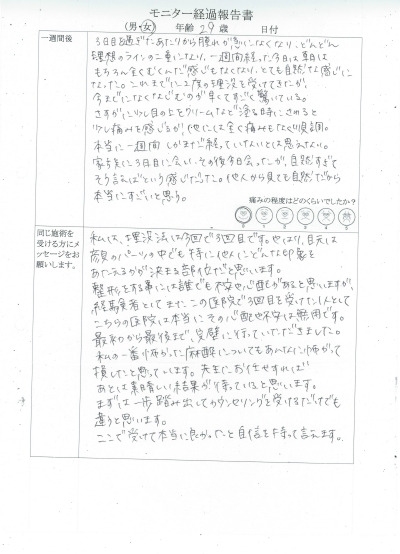 モニター経過報告書
(男・女) 年齢 29 歳 日付
一週間後
3日目を過ぎたあたりから腫れが急になくなり、どんどん
理想のラインの二重になり、一週間経った今日は草日は
もちろん全くむくんだ感じもなくなり、とても自然な感じに
なった。これまでに2度の埋没を受けてきたが、
今までになくなじむのが早くてすごく驚いている。
さすがに少し目の上をクリームなどで塗る時にさわると
少し痛みを感じるが、他には全く痛みもなく順調。
本当に一週間しかまだ経っていないとは思えない。
家族に3日目に会い、その後今日会ったが、自然すぎて
そう言えばという感じだった。他人から見ても自然だから
本当にすごいと思う。
痛みの程度はどのくらいでしたか?
0 1 2 3 4 5
同じ施術を
受ける方にメ
ッセージをお
願いします。
私は、埋没法は今回で3回目です。やはり、目元は
顔のパーツの中でも特に他人にどんな印象を
あたえるかが決まる部位だと思います。
整形をする事には誰でも不安や心配があると思いますが、
経験者として、またこの医院で3回目を受けた1人として
こちらの医院は本当にその心配や不安は無用です。
最初から最後まで、完璧に行っていただきました。
私の一番怖かった麻酔についてもあんなに怖がって
損したと思っています。先生にお任せすれば
あとは素晴しい結果が待っていると思います。
まずは一歩踏み出してカウンセリングを受けるだけでも
違うと思います。
ここで受けて本当に良かったと自信を持って言えます。